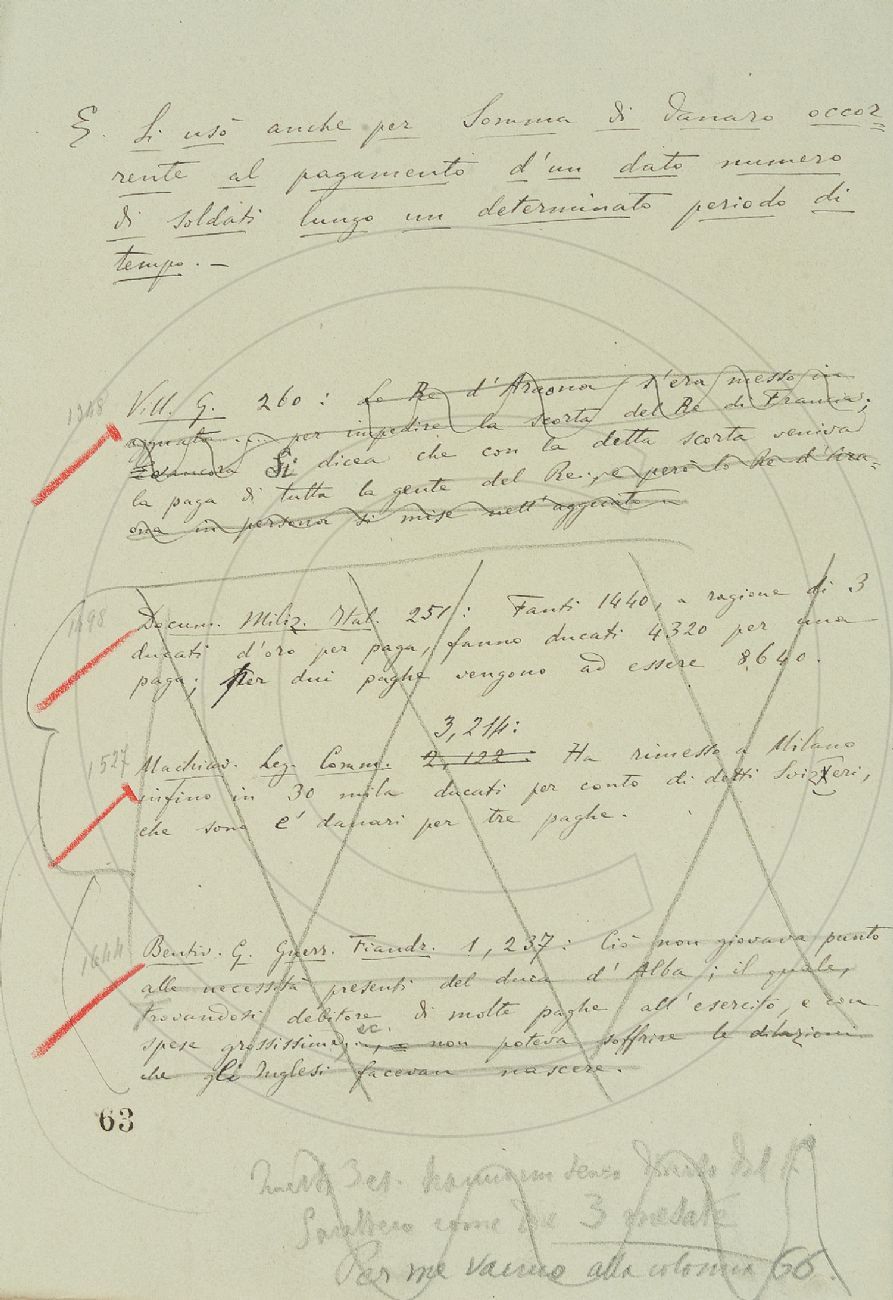 §. Si usò anche per Somma di danaro occor=
rente al pagamento d'un dato numero
di soldati lungo un determinato periodo di
tempo. —
1348
Vill. G. 260: Lo Re d'Araona s'era messo in
agguato ... per impedire la scorta del Re di Francia;
Si dicea che con la detta scorta veniva
la paga di tutta la gente del Re; e però lo Re d'Ara=
ona in persona si mise nell'agguato
1498
Docum. Miliz. Ital. 251: Fanti 1440, a ragione di 3
ducati d'oro per paga, fanno ducati 4320 per una
paga; per dui paghe vengono ad essere 8640.
3,214:
1527
Machiav. Leg. Comm. 2,122 Ha rimesso a Milano
infino in 30 mila ducati per conto di detti Svizzeri,
che sono e' danari per tre paghe.
1644
Bentiv. G. Guerr. Fiandr. 1, 237: Ciò non giovava punto
alle necessità presenti del duca d'Alba; il quale,
trovandosi debitore di molte paghe all'esercito, e con
spese grossissime, ec. non poteva soffrire le dilazioni
che gli Inglesi facevan nascere.
63
3 senso del
come 3 mesate
Per me vanno alla colonna 66.